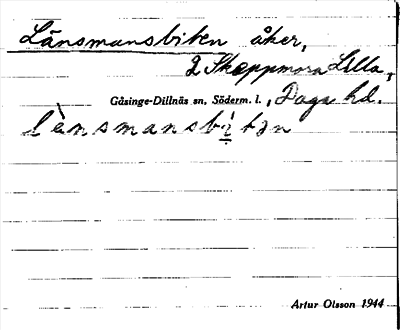 Länsmansbiten åker,
2 Skeppmora Lilla,
Gåsinge-Dillnäs sn, Söderm. l., Daga hd.
lènsmansbị̇tən
Artur Olsson 1944